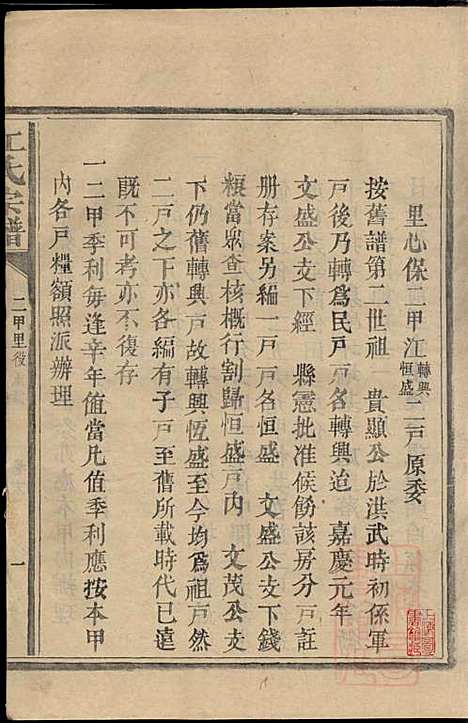 里心保二甲江轉興恒盛二戸原委
按舊譜第二世祖　貴顯公於洪武時初係軍
戸後乃轉爲民戸戸名轉興迨　嘉慶元年
文盛公支下經　縣憲批准候飭該房分戸註
册存案另編一戸戸名恒盛　文盛公支下錢
糧當點查核概行割歸恒盛戸内　文茂公支
下仍舊轉興戸故轉興恆盛至今均爲祖戸然
二戸之下亦各編有子戸至舊所載時代已遠
既不可考亦不復存
一二甲季利每逢辛年值當凡值季利應按本甲
内各戸糧額照派辦理
江氏宗譜
二甲里役
一